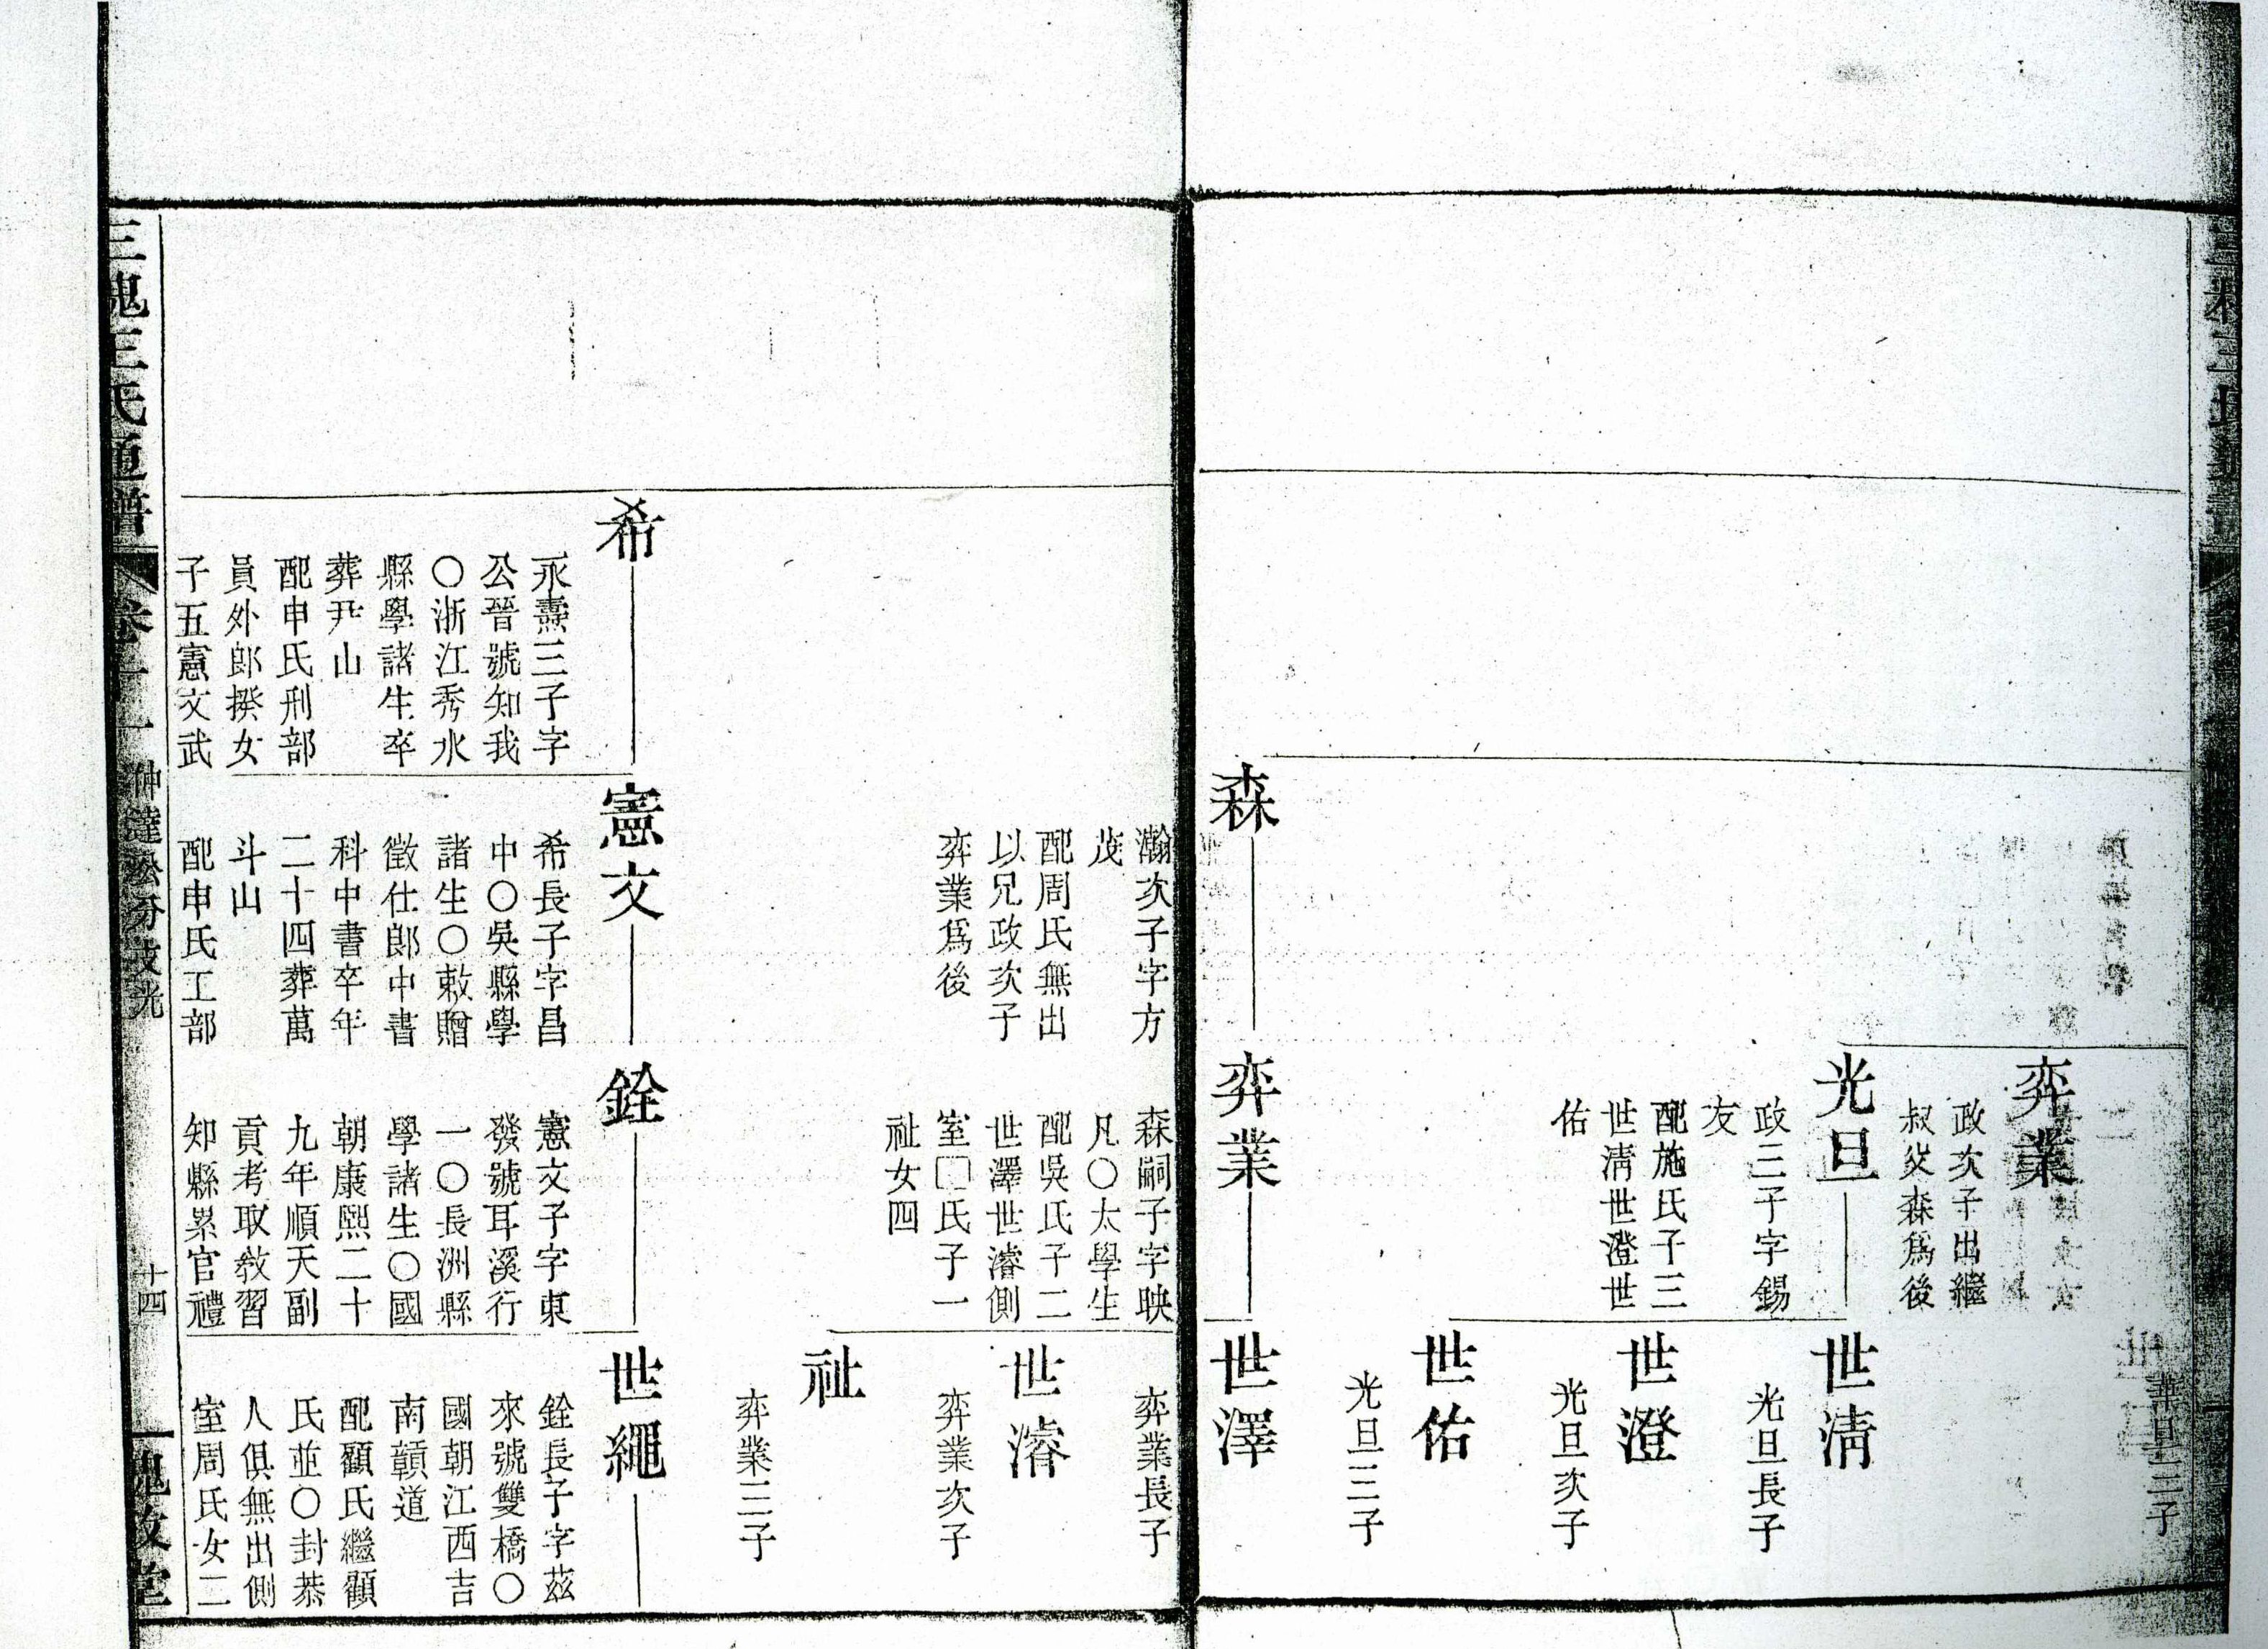 世
業旦三子
弈業
政次子出繼
叔父森爲後
光旦
政三子字錫
友
配施氏子三
世清世澄世
佑
世清
光旦長子
世澄
光旦次子
世佑
光旦三子
森
瀚次子字方
茂
配周氏無出
以兄政次子
弈業爲後
弈業
森嗣子字映
凡〇太學生
配吳氏子二
世澤世濬側
室□氏子一
祉女四
世澤
弈業長子
世濬
弈業次子
祉
弈業三子
希
永燾三子字
公晉號知我
〇浙江秀水
縣學諸生卒
葬尹山
配申氏刑部
員外郎揆女
子五憲文武
憲文
希長子字昌
中〇吳縣學
諸生〇敕贈
徵仕郎中書
科中書卒年
二十四葬萬
斗山
配申氏工部
銓
憲文子字東
發號耳溪行
一〇長洲縣
學諸生〇國
朝康熙二十
九年順天副
貢考取教習
知縣累官禮
世繩
銓長子字茲
來號雙橋〇
國朝江西吉
南贛道
配顧氏繼顧
氏並〇封恭
人俱無出側
室周氏女二
三槐王氏通譜
卷十一
十四
槐政堂